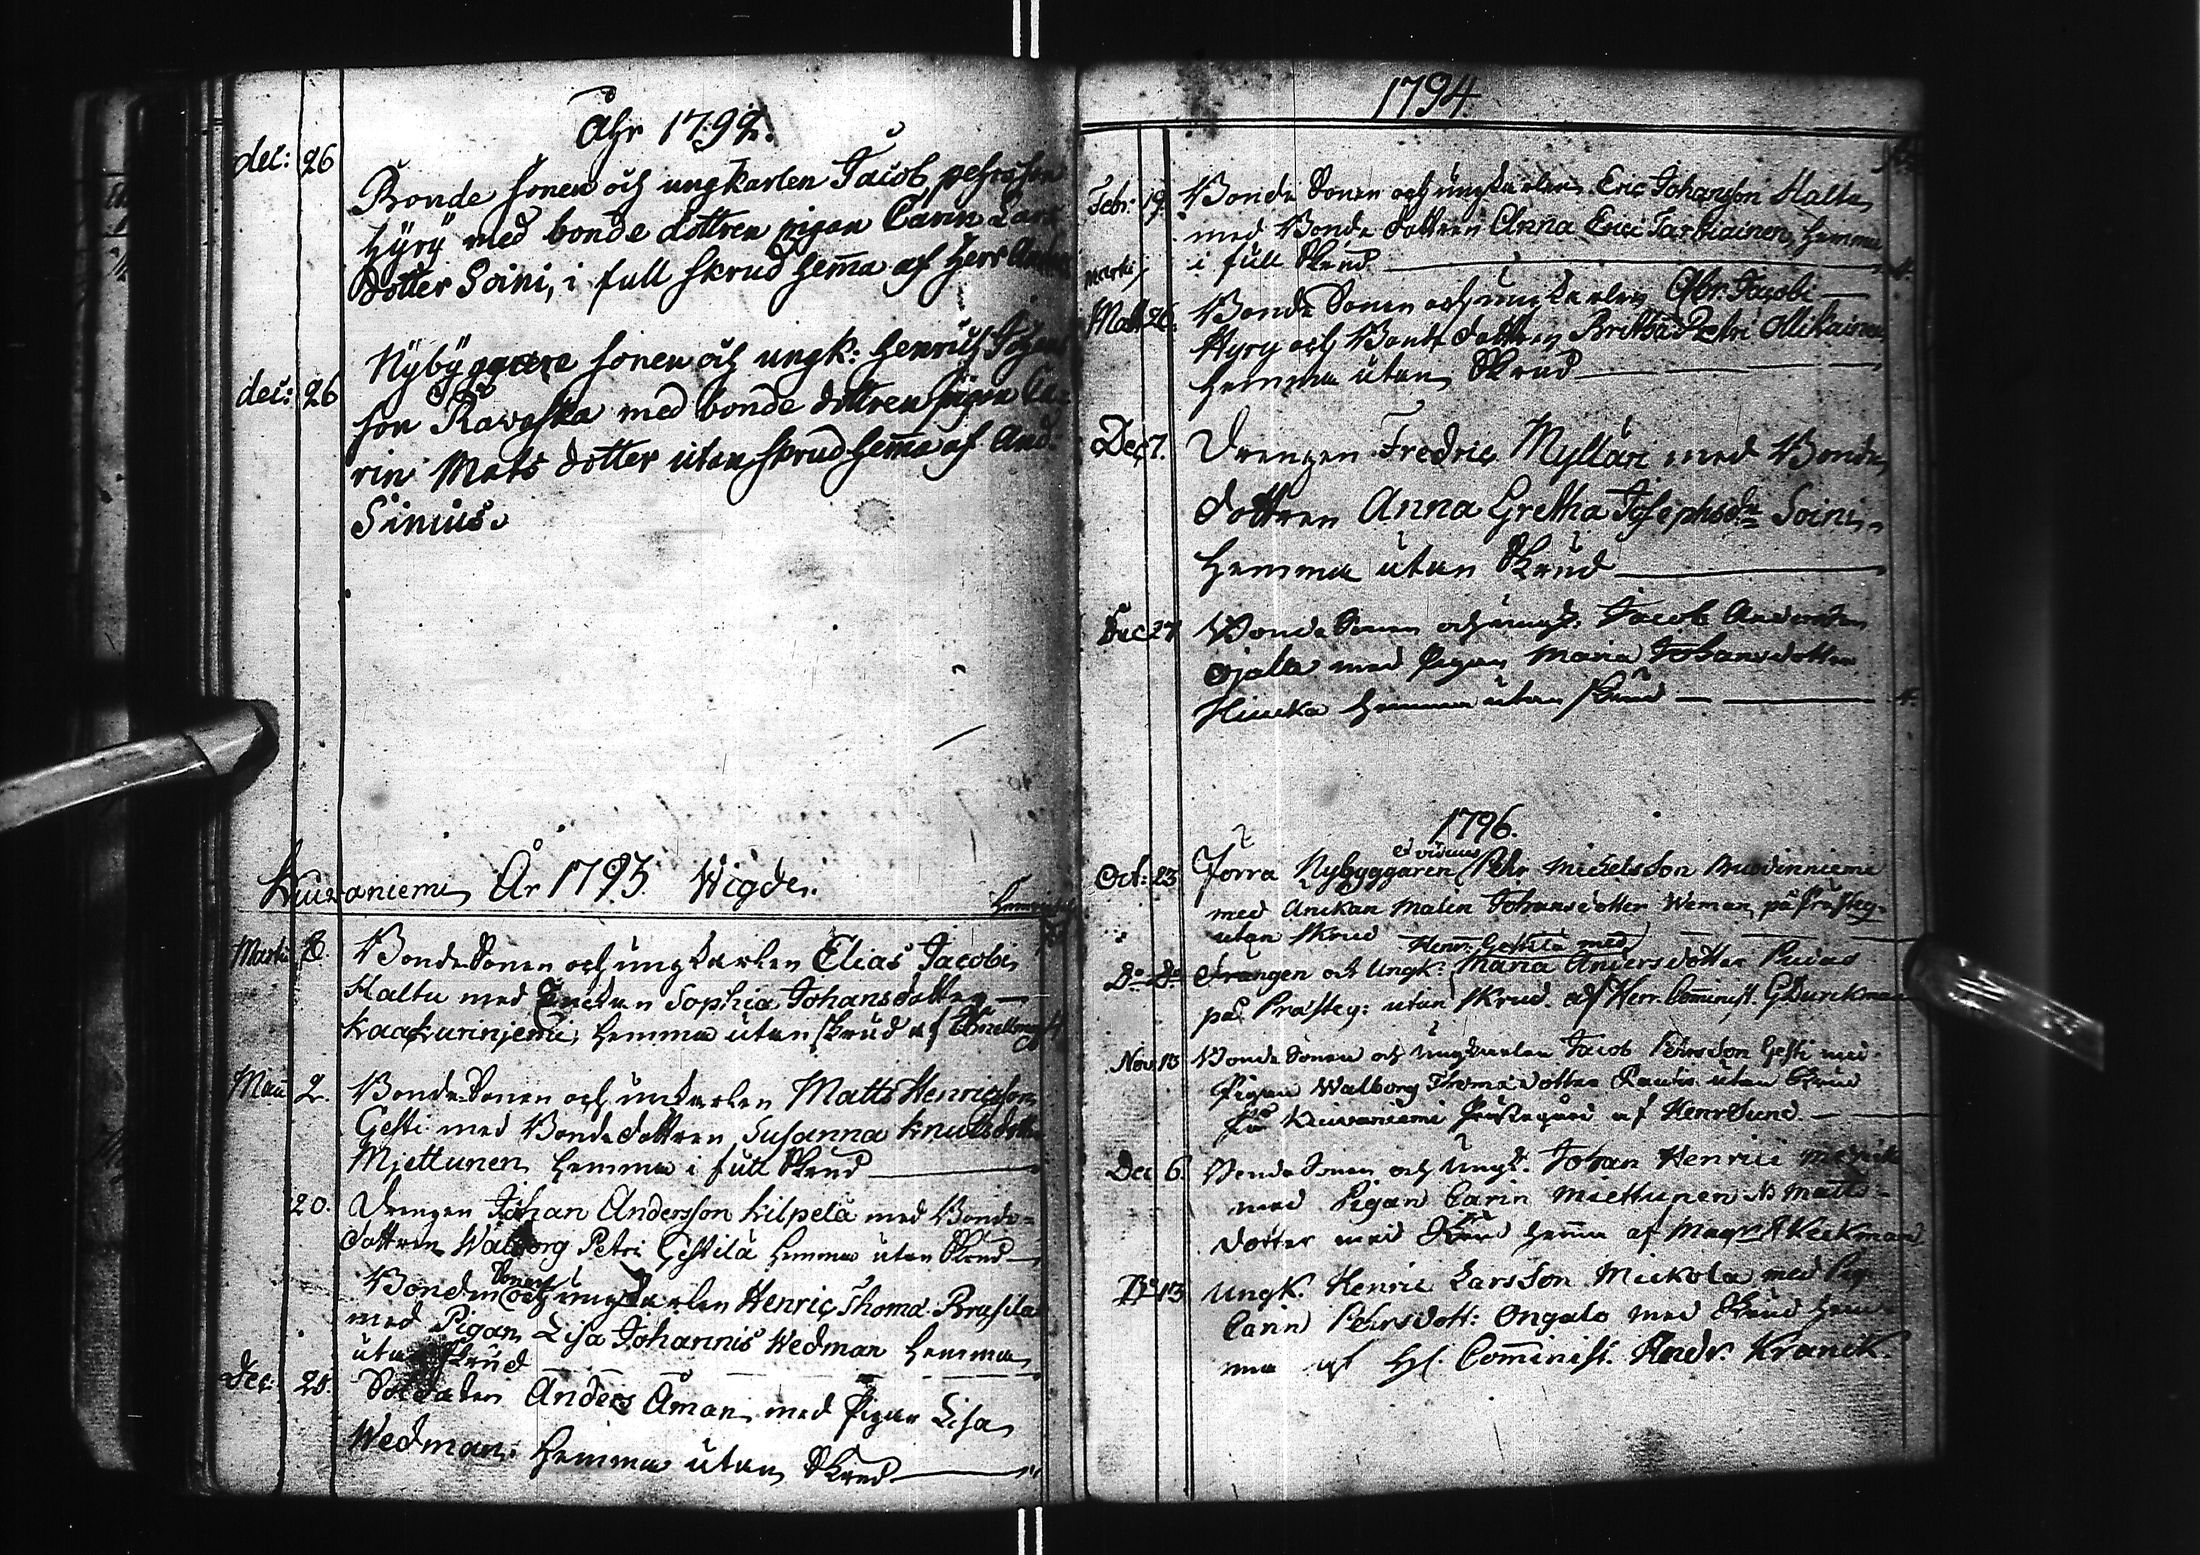 Åhr 1792.
dec: 26
Bonde sonen och ungkarlen Jacob pehrsson
Hÿrÿ med bonde dottren pigan Carin Lars
dotter Soini, i full skrud hema af Herr
dec: 26
Nÿbÿggare sonen och ungk: Henrich Johans
son Ravaska med bonde dottren pigan Ca=
rin Mats dotter utan skrud hema af And.
Simius.
Kuivaniemi År 1793. Wigde.
Martii 3. BondeSonen och ungkarlen Elias Jacobi
Halta med Enckan Sophia Johansdotter
Kaakurinjemi, hemma utan skrud af
Maii 2. BondeSonen och unkarlen Matts Henricsson
Gesti med Bondedottren Susanna Knutsdotter
Mjettunen hemma i full Skrud
20. Drengen Johan Andersson Kilpelä med Bonde-
dottren Walborg Petri Gestilä hemma utan Skrud
Bonden Sonen och ungkarlen Henric Thomæ Brusila
med Pigan Lisa Johannis Wedman hemma
utan Skrud
Dec: 28. Soldaten Anders Åman med Pigan Lisa
Wedman. Hemma utan Skrud
1794.
Febr: 19. Bonde Sonen och ungkarlen Eric Johansson Halta
med Bonde dottren Anna Erici Tarkiainen, hemma
i full Skrud
Martii
26. Bonde Sonen och ungkarlen Abr. Jacobi
Hyry och Bonde dottren Britha Petri Ollikainen
hemma utan Skrud
Dec 7. Drengen Fredric Mylläri med Bonde
dottren Anna Gretha Josephsdr Soini
hemma utan Skrud
Dec 27 BondeSonen och ungk. Jacob Andersson
Ojala med Pigan Maria Johansdotter
Hiucka hemma utan skrud
1796.
Oct: 23 Förra Nybyggaren et viduus Pehr Michelsson
med Änckan Malin Johansdotter Weman på Prästeg.
utan skrud
Do Do Drängen och Ungk: Henr: Gestilä med Maria Andersdotter
på Prästeg: utan skrud af Herr Comminist. G Durchman
Nov. 13 BondeSonen och Ungkarlen Jacob Pehrsson Gesti med
Pigan Walborg Thomædotter utan Skrud
på Kuivaniemi Prästegård af Henr Sund.
Dec 6. BondeSonen och Ungk. Johan Henrici
med Pigan Carin Miettunen Matts-
dotter med Skrud hemma af Mag
Do 13 Ungk. Henric LarsSon Mickola med Pig
Carin Pehrsdott: Ongalo med Skrud hem-
ma af Hl. Comminist. Andr. Kranck.